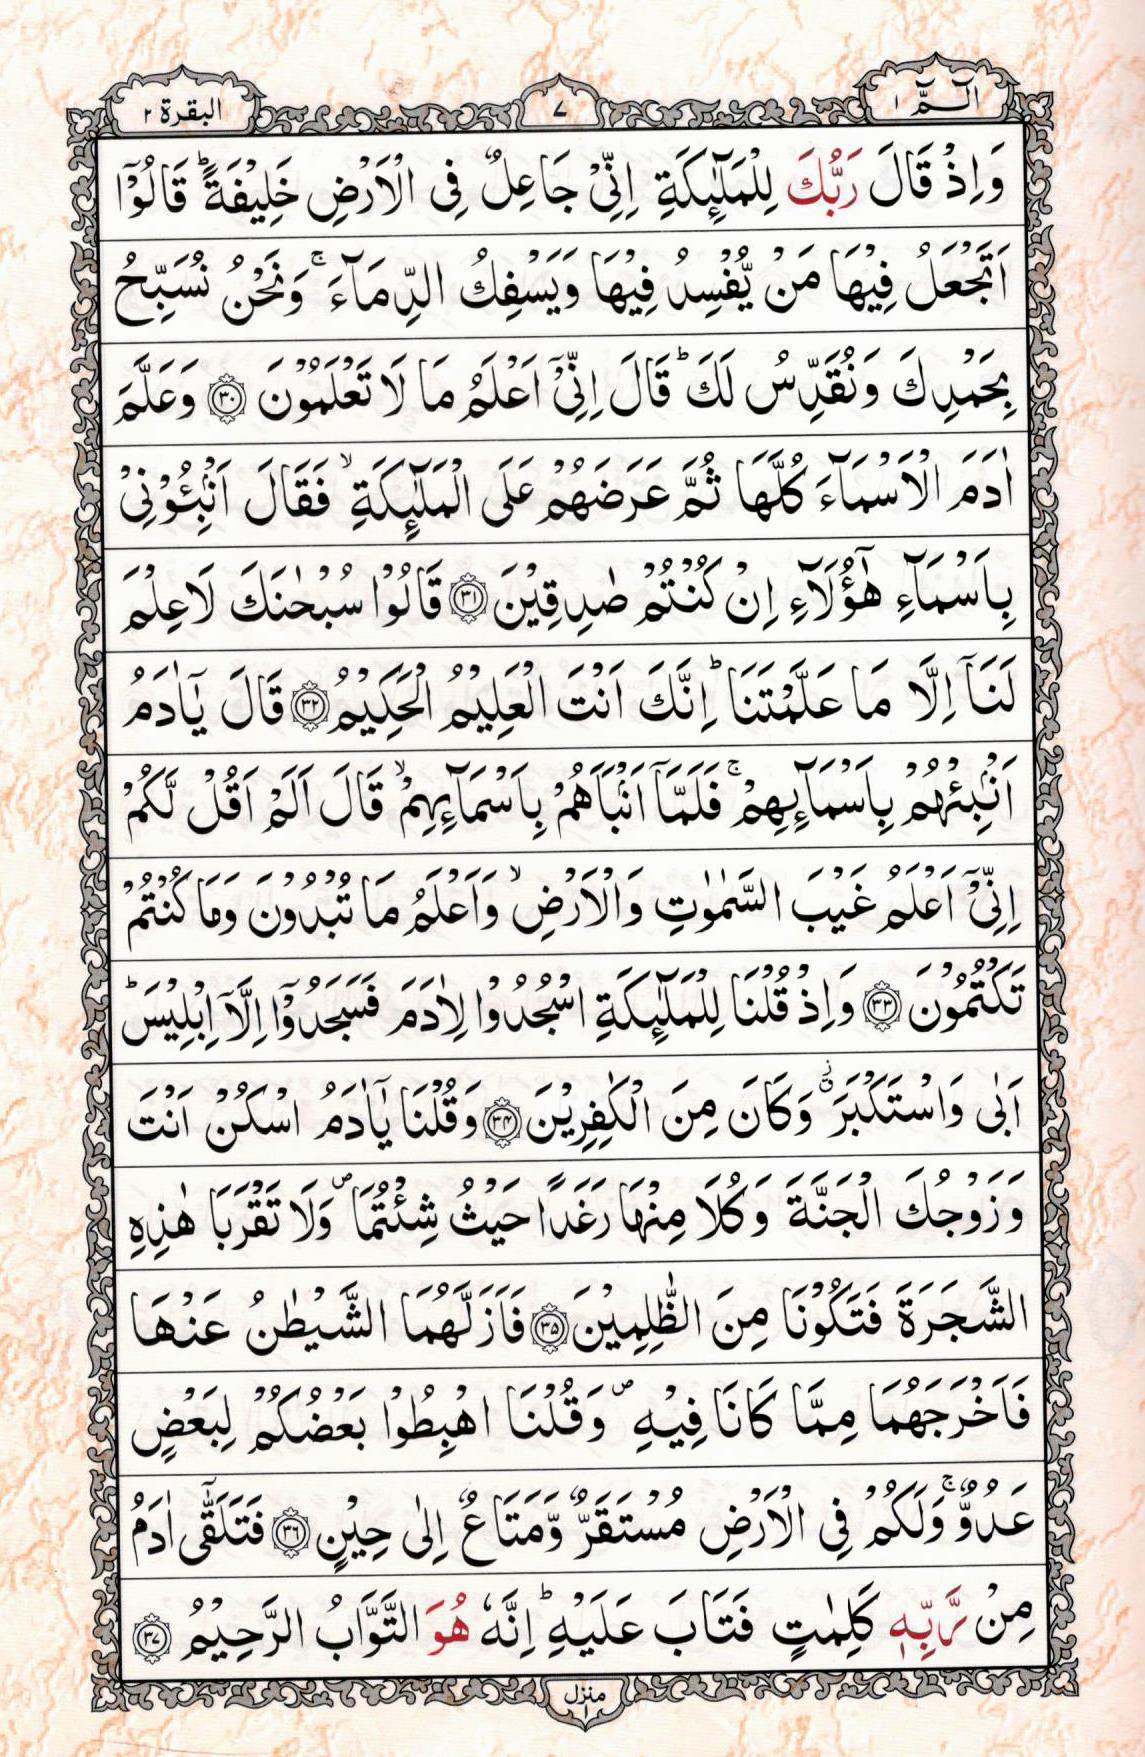 الٓـمّٓ ١
٧
البقرة ٢
وَاِذْ قَالَ رَبُّكَ لِلْمَلٰٓئِكَةِ اِنِّیْ جَاعِلٌ فِی الْاَرْضِ خَلِیْفَةًؕ قَالُوْۤا
اَتَجْعَلُ فِیْهَا مَنْ یُّفْسِدُ فِیْهَا وَیَسْفِكُ الدِّمَآءَۚ وَنَحْنُ نُسَبِّحُ
بِحَمْدِكَ وَنُقَدِّسُ لَكَؕ قَالَ اِنِّیْۤ اَعْلَمُ مَا لَا تَعْلَمُوْنَ ﴿۳۰﴾ وَعَلَّمَ
اٰدَمَ الْاَسْمَآءَ كُلَّهَا ثُمَّ عَرَضَهُمْ عَلَی الْمَلٰٓئِكَةِۙ فَقَالَ اَنْۢبِـُٔوْنِیْ
بِاَسْمَآءِ هٰۤؤُلَآءِ اِنْ كُنْتُمْ صٰدِقِیْنَ ﴿۳۱﴾ قَالُوْا سُبْحٰنَكَ لَا عِلْمَ
لَنَاۤ اِلَّا مَا عَلَّمْتَنَاؕ اِنَّكَ اَنْتَ الْعَلِیْمُ الْحَكِیْمُ ﴿۳۲﴾ قَالَ یٰۤاٰدَمُ
اَنْۢبِئْهُمْ بِاَسْمَآئِهِمْۚ فَلَمَّاۤ اَنْۢبَاَهُمْ بِاَسْمَآئِهِمْۙ قَالَ اَلَمْ اَقُلْ لَّكُمْ
اِنِّیْۤ اَعْلَمُ غَیْبَ السَّمٰوٰتِ وَالْاَرْضِۙ وَاَعْلَمُ مَا تُبْدُوْنَ وَمَا كُنْتُمْ
تَكْتُمُوْنَ ﴿۳۳﴾ وَاِذْ قُلْنَا لِلْمَلٰٓئِكَةِ اسْجُدُوْا لِاٰدَمَ فَسَجَدُوْۤا اِلَّاۤ اِبْلِیْسَؕ
اَبٰی وَاسْتَكْبَرَ٘ۗ وَكَانَ مِنَ الْكٰفِرِیْنَ ﴿۳۴﴾ وَقُلْنَا یٰۤاٰدَمُ اسْكُنْ اَنْتَ
وَزَوْجُكَ الْجَنَّةَ وَكُلَا مِنْهَا رَغَدًا حَیْثُ شِئْتُمَا۪ وَلَا تَقْرَبَا هٰذِهِ
الشَّجَرَةَ فَتَكُوْنَا مِنَ الظّٰلِمِیْنَ ﴿۳۵﴾ فَاَزَلَّهُمَا الشَّیْطٰنُ عَنْهَا
فَاَخْرَجَهُمَا مِمَّا كَانَا فِیْهِ۪ وَقُلْنَا اهْبِطُوْا بَعْضُكُمْ لِبَعْضٍ
عَدُوٌّۚ وَلَكُمْ فِی الْاَرْضِ مُسْتَقَرٌّ وَّمَتَاعٌ اِلٰی حِیْنٍ ﴿۳۶﴾ فَتَلَقّٰۤی اٰدَمُ
مِنْ رَّبِّهٖ كَلِمٰتٍ فَتَابَ عَلَیْهِؕ اِنَّهٗ هُوَ التَّوَّابُ الرَّحِیْمُ ﴿۳۷﴾
منزل ١